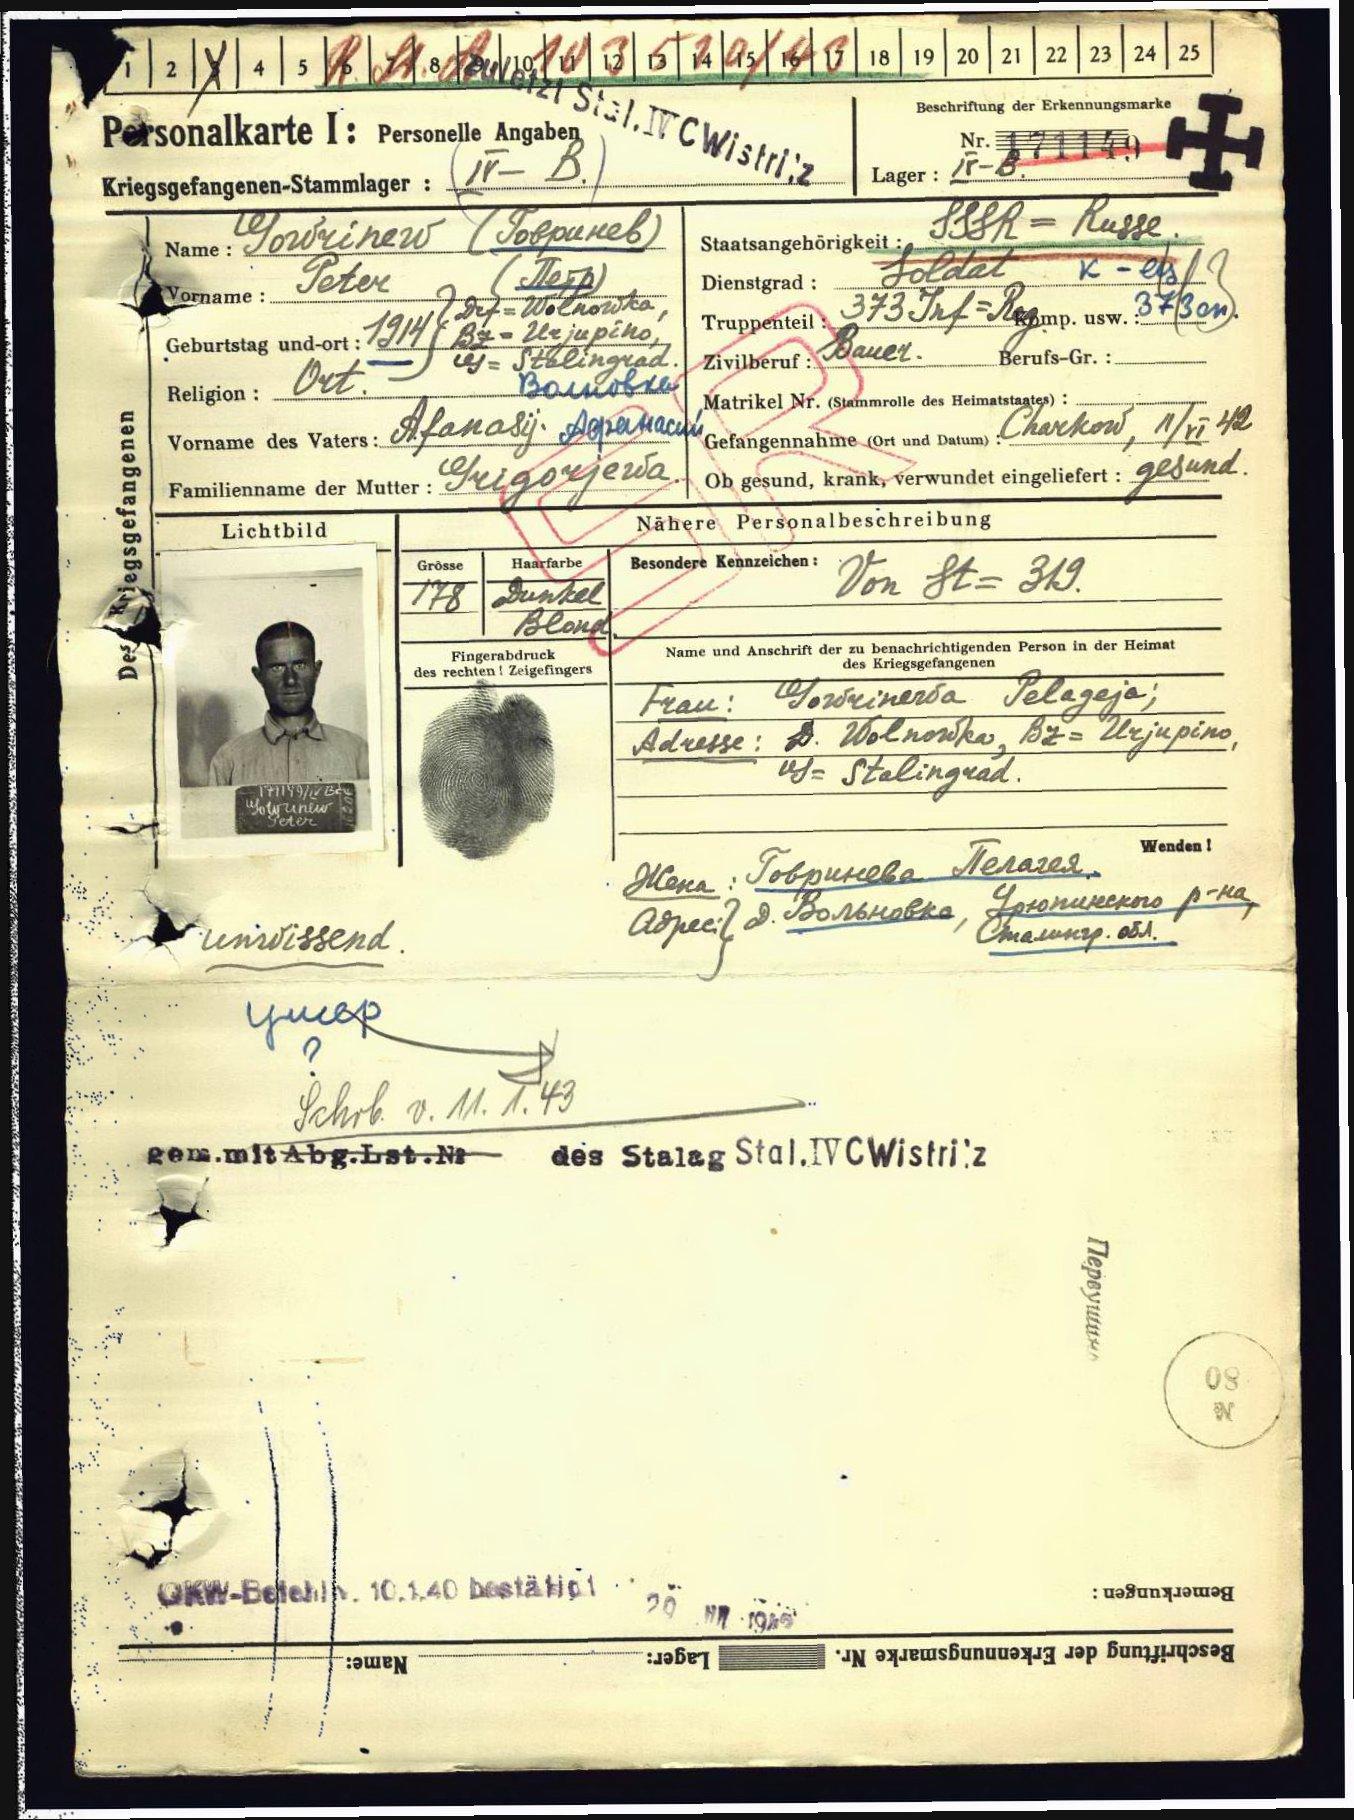 1 2 3 4 5 6 7 8 9 10 11 12 13 14 15 16 17 18 19 20 21 22 23 24 25
Stal.IVCWistri:z
Personalkarte I: Personelle Angaben
Beschriftung der Erkennungsmarke
Nr. 171149
Kriegsgefangenen-Stammlager : (IV – B.)
Lager : IV-B.
Des Kriegsgefangenen
Name : Gowrinew (Говринев)
Vorname : Peter (Петр)
Geburtstag und-ort : 1914 Drf = Wolnowka,
Bz = Urjupino,
Stalingrad.
Religion : Ort. Волновка
Vorname des Vaters : Afanasij. Афанасий
Familienname der Mutter : Grigorjewa.
Staatsangehörigkeit : SSSR = Russe.
Dienstgrad : Soldat
Truppenteil : 373 Inf = Reg Komp. usw. : 373
Zivilberuf : Bauer. Berufs-Gr. :
Matrikel Nr. (Stammrolle des Heimatstaates) :
Gefangennahme (Ort und Datum) : Charkow, 11/VI 42
Ob gesund, krank, verwundet eingeliefert : gesund.
Lichtbild
Nähere Personalbeschreibung
Grösse
178
Haarfarbe
Dunkel
Blond.
Besondere Kennzeichen : Von St = 319.
Fingerabdruck
des rechten ! Zeigefingers
Name und Anschrift der zu benachrichtigenden Person in der Heimat
des Kriegsgefangenen
Frau : Gowrinewa Pelageja ;
Adresse : D. Wolnowka, Bz = Urjupino,
Stalingrad.
171149/IV B
Gowrinew
Peter
Wenden !
Жена : Говринева Пелагея.
Адрес: д. Вольновка, Урюпинского р-на,
Сталингр. обл.
unwissend.
умер
?
Schrb. v. 11. 1. 43
gem.mit Abg.Lst.№ des Stalag Stal.IVCWistri:z
Первушино
80
M
OKW-Befehl v. 10.1.40 bestätigt
Bemerkungen :
Beschriftung der Erkennungsmarke Nr. Lager: Name: